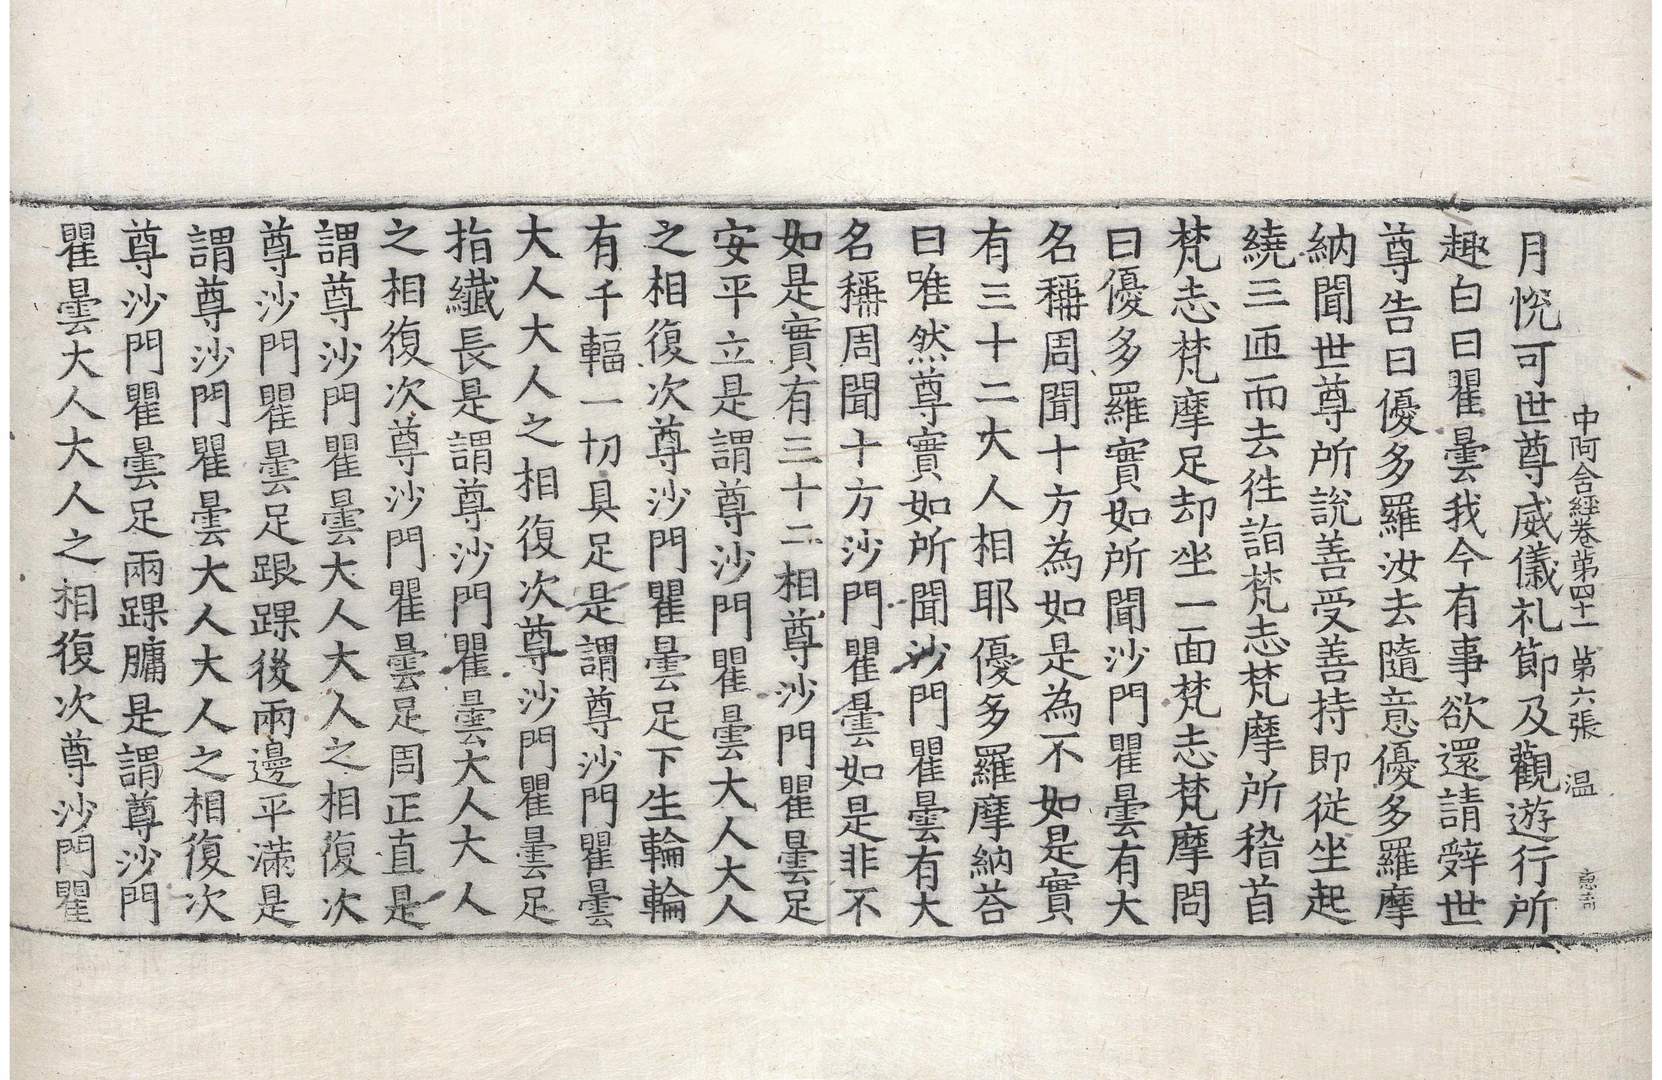 中阿含經卷苐四十一 苐六張 温
月恱可世尊威儀礼節及觀遊行所
趣白曰瞿曇我今有事欲還請辤世
尊告曰優多羅汝去隨意優多羅摩
納聞世尊所說善受善持即従坐起
繞三匝而去徃詣梵志梵摩所稽首
梵志梵摩足却坐一面梵志梵摩問
曰優多羅實如所聞沙門瞿曇有大
名稱周聞十方為如是為不如是實
有三十二大人相耶優多羅摩納荅
曰唯然尊實如所聞沙門瞿曇有大
名稱周聞十方沙門瞿曇如是非不
如是實有三十二相尊沙門瞿曇足
安平立是謂尊沙門瞿曇大人大人
之相復次尊沙門瞿曇足下生輪輪
有千輻一切具足是謂尊沙門瞿曇
大人大人之相復次尊沙門瞿曇足
指纖長是謂尊沙門瞿曇大人大人
之相復次尊沙門瞿曇足周正直是
謂尊沙門瞿曇大人大人之相復次
尊沙門瞿曇足跟踝後兩邊平滿是
謂尊沙門瞿曇大人大人之相復次
尊沙門瞿曇足兩踝𦟛是謂尊沙門
瞿曇大人大人之相復次尊沙門瞿